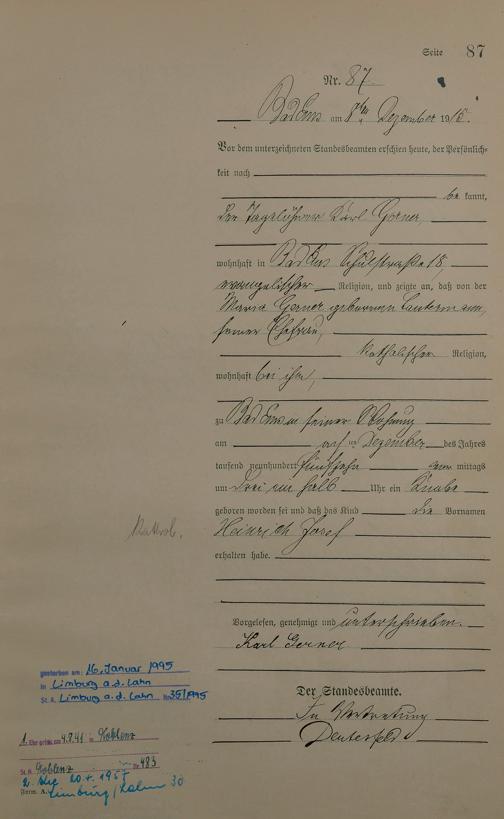 Seite 87
Nr. 87
Bad Ems am 8ten Dezember 1915.
Vor dem unterzeichneten Standesbeamten erschien heute, der Persönlich-
keit nach
be kannt,
der Tagelöhner Karl Gerner,
wohnhaft in Bad Ems Schulstraße 18,
evangelischer Religion, und zeigte an, daß von der
Maria Gerner geborenen
seiner Ehefrau,
katholischer Religion,
wohnhaft bei ihm,
zu Bad Ems in seiner Wohnung
am Dezember des Jahres
tausend neunhundert fünfzehn mittags
um drei ein halb Uhr ein Knabe
geboren worden sei und daß das Kind die Vornamen
Heinrich Josef
erhalten habe.
Vorgelesen, genehmigt und unterschrieben.
Karl Gerner
Der Standesbeamte.
In Vertretung
gestorben am: 16. Januar 1995
in Limburg a.d. Lahn
St. A. Limburg a.d. Lahn Nr. 35/1995
1. Ehe geschl. am 4.7.41 in Koblenz
St. A. Koblenz Nr. 483
Form. A.
Limburg / Lahn 30